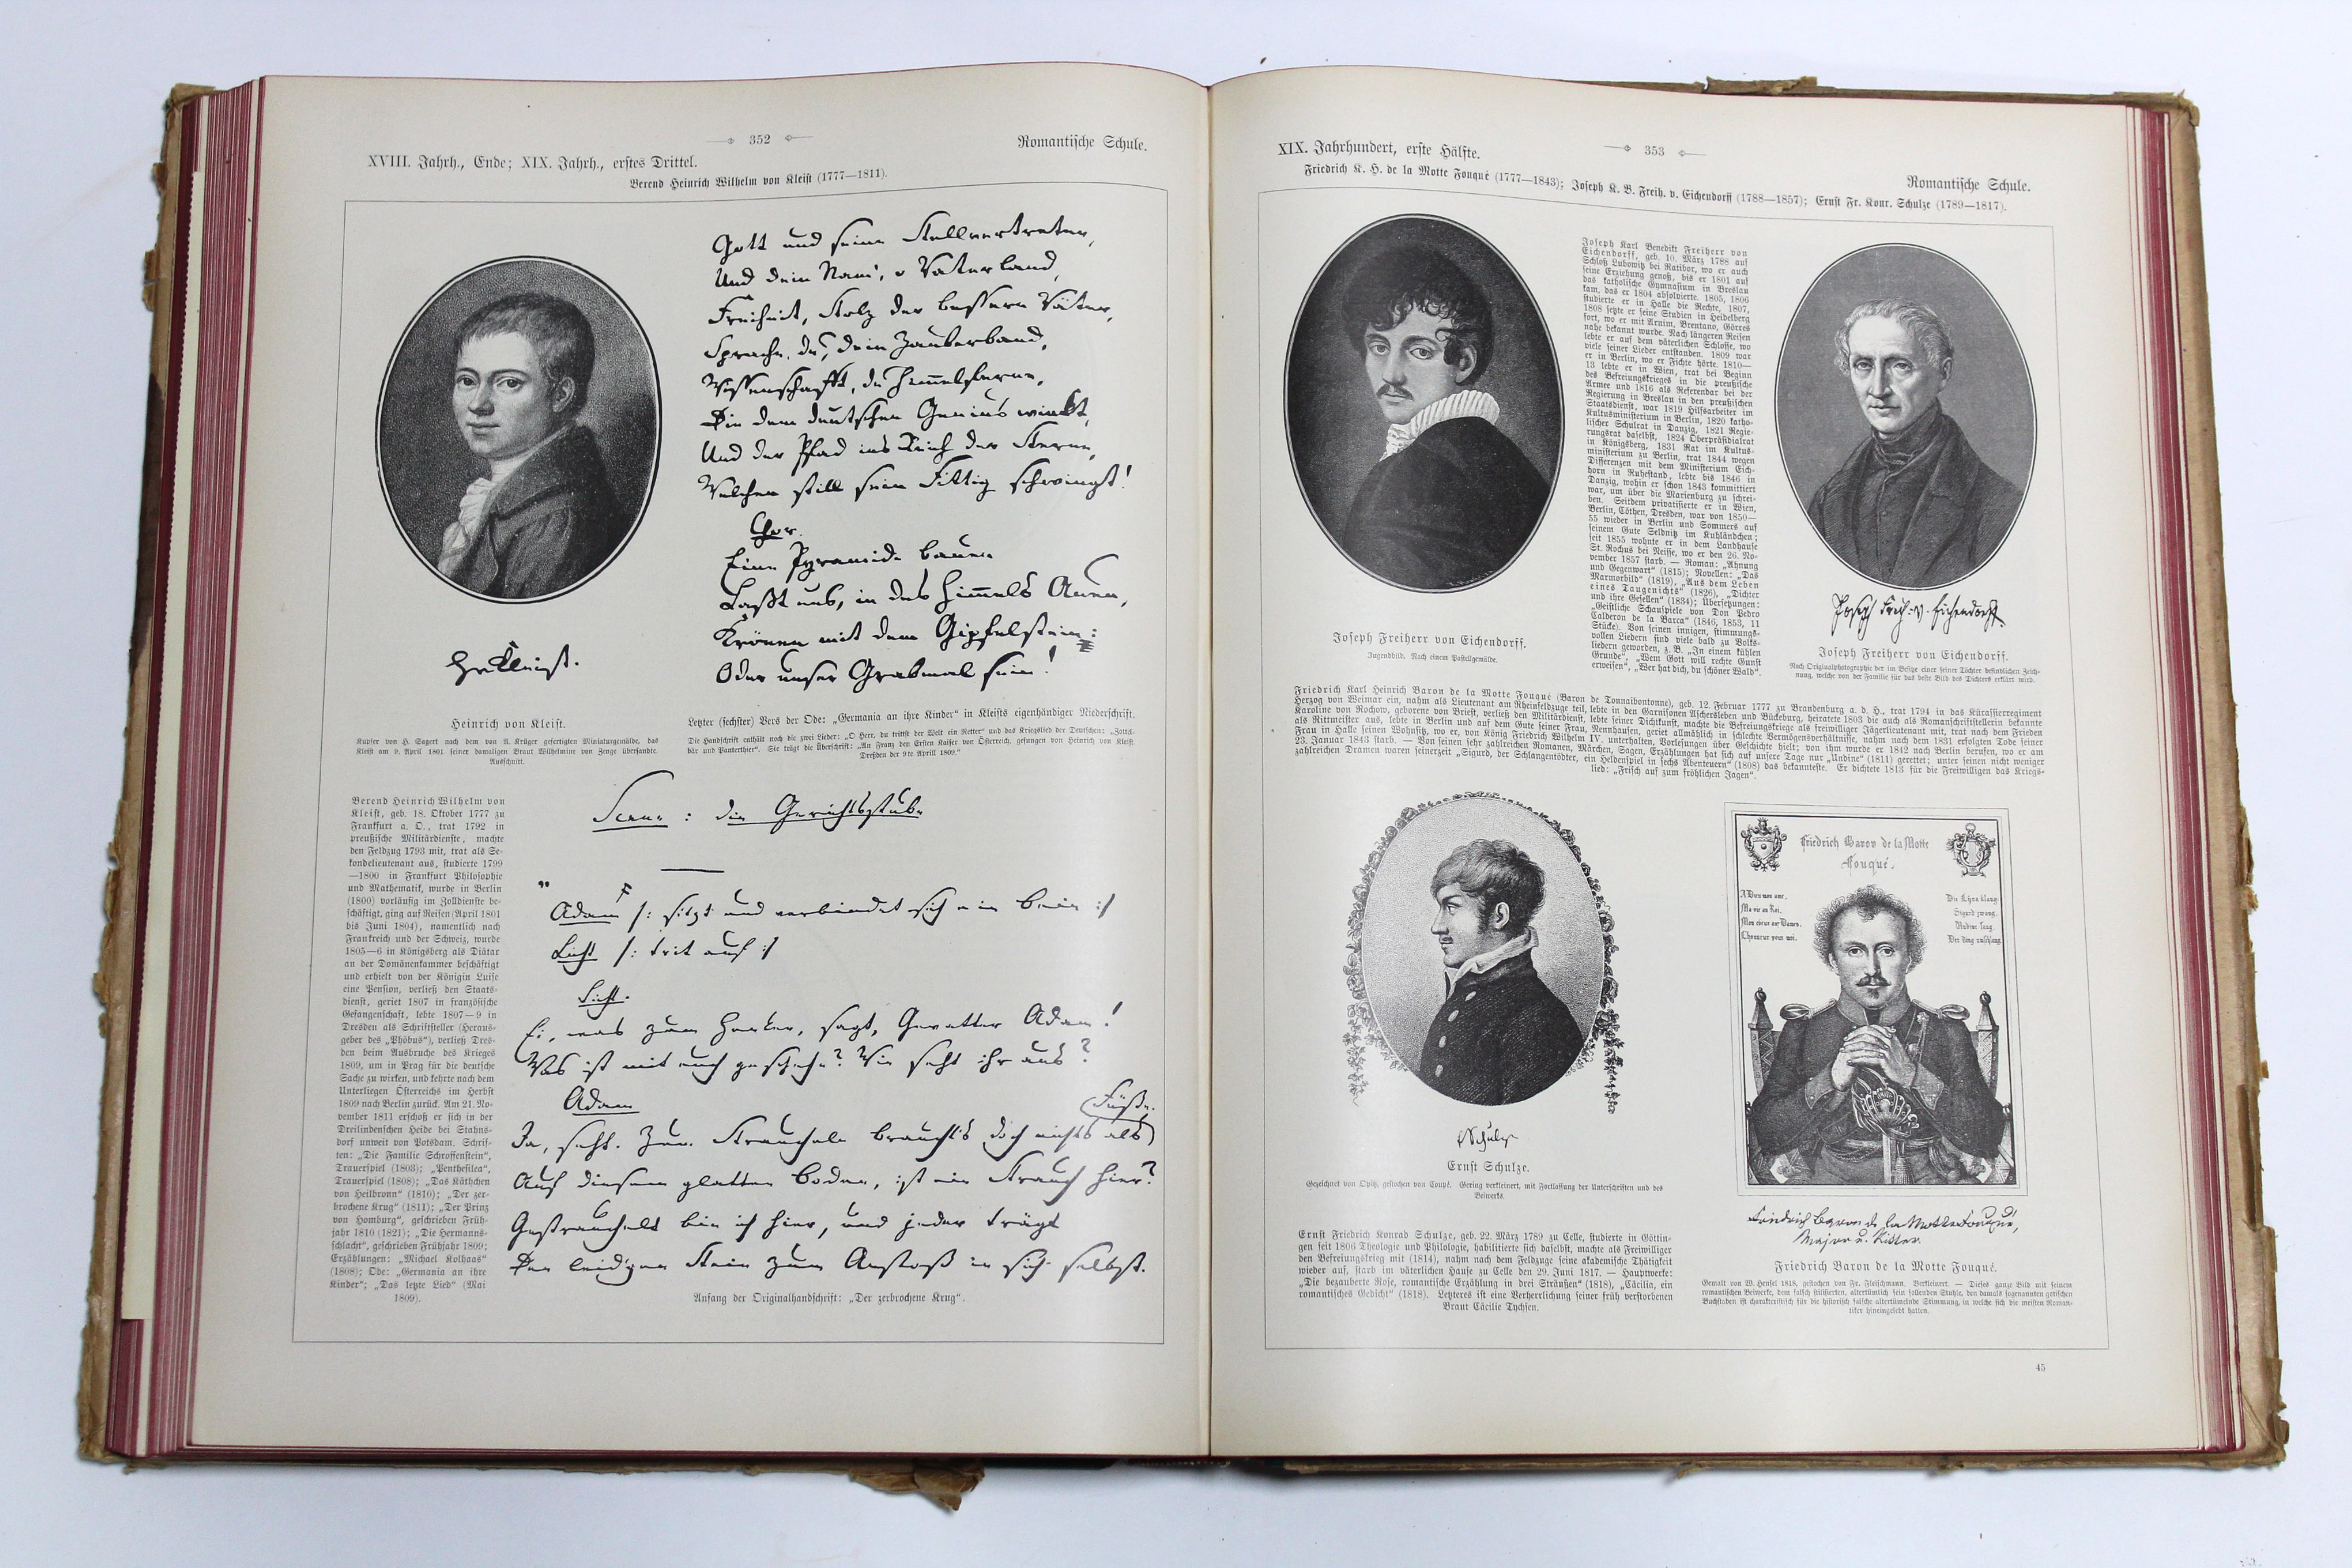 352
Romantische Schule.
XVIII. Jahrh., Ende; XIX. Jahrh., erstes Drittel.
Berend Heinrich Wilhelm von Kleist (1777—1811).
Gott und seine Stellvertreter,
Und dein Nam', o Vaterland,
Freiheit, Stolz der bessern Väter,
Sprache, du, dein Zauberband,
Wissenschafft, du Himmelsferne,
Die dem deutschen Genius winckt,
Und der Pfad ins Reich der Sterne,
Welchen still sein Fittig schwingt!
Chor.
Eine Pyramide bauen
Laßt uns, in des Himmels Auen,
Krönen mit dem Gipfelstein:
Oder unser Grabmal sein!
Heinrich von Kleist.
Kupfer von H. Sagert nach dem von A. Krüger gefertigten Miniaturgemälde, das
Kleist am 9. April 1801 seiner damaligen Braut Wilhelmine von Zenge übersandte.
Ausschnitt.
Letzter (sechster) Vers der Ode: „Germania an ihre Kinder“ in Kleists eigenhändiger Niederschrift.
Die Handschrift enthält noch die zwei Lieder: „O Herr, du trittst der Welt ein Retter“ und das Kriegslied der Deutschen: „Zottel-
bär und Panterthier“. Sie trägt die Überschrift: „An Franz den Ersten Kaiser von Österreich, gesungen von Heinrich von Kleist
Dresden der 9te Aprill 1809.“
Scene: die Gerichtsstube
Adam /: sitzt und verbindet sich ein Bein :/
Licht /: trit auf :/
Licht.
Ei, was zum Henker, sagt, Gevatter Adam!
Was ist mit euch geschehn? Wie seht ihr aus?
Adam
Füße.
Ja, seht. Zum Straucheln braucht's doch nichts als
Auf diesem glatten Boden, ist ein Strauch hier?
Gestrauchelt bin ich hier, und jeder trägt
Den leidigen Stein zum Anstoß in sich selbst.
Anfang der Originalhandschrift: „Der zerbrochene Krug“.
Berend Heinrich Wilhelm von
Kleist, geb. 18. Oktober 1777 zu
Frankfurt a. O., trat 1792 in
preußische Militärdienste, machte
den Feldzug 1793 mit, trat als Se-
kondelieutenant aus, studierte 1799
—1800 in Frankfurt Philosophie
und Mathematik, wurde in Berlin
(1800) vorläufig im Zolldienste be-
schäftigt, ging auf Reisen (April 1801
bis Juni 1804), namentlich nach
Frankreich und der Schweiz, wurde
1805—6 in Königsberg als Diätar
an der Domänenkammer beschäftigt
und erhielt von der Königin Luise
eine Pension, verließ den Staats-
dienst, geriet 1807 in französische
Gefangenschaft, lebte 1807—9 in
Dresden als Schriftsteller (Heraus-
geber des „Phöbus“), verließ Dres-
den beim Ausbruche des Krieges
1809, um in Prag für die deutsche
Sache zu wirken, und kehrte nach dem
Unterliegen Österreichs im Herbst
1809 nach Berlin zurück. Am 21. No-
vember 1811 erschoß er sich in der
Dreilindenschen Heide bei Stahns-
dorf unweit von Potsdam. Schrif-
ten: „Die Familie Schroffenstein“,
Trauerspiel (1803); „Penthesilea“,
Trauerspiel (1808); „Das Käthchen
von Heilbronn“ (1810); „Der zer-
brochene Krug“ (1811); „Der Prinz
von Homburg“, geschrieben Früh-
jahr 1810 (1821); „Die Hermanns-
schlacht“, geschrieben Frühjahr 1809;
Erzählungen: „Michael Kolhaas“
(1808); Ode: „Germania an ihre
Kinder“; „Das letzte Lied“ (Mai
1809).
XIX. Jahrhundert, erste Hälfte.
353
Romantische Schule.
Friedrich K. H. de la Motte Fouqué (1777—1843); Joseph K. B. Freih. v. Eichendorff (1788—1857); Ernst Fr. Konr. Schulze (1789—1817).
Joseph Karl Benedikt Freiherr von
Eichendorff, geb. 10. März 1788 auf
Schloß Lubowitz bei Ratibor, wo er auch
seine Erziehung genoß, bis er 1801 auf
das katholische Gymnasium in Breslau
kam, das er 1804 absolvierte. 1805, 1806
studierte er in Halle die Rechte, 1807,
1808 setzte er seine Studien in Heidelberg
fort, wo er mit Arnim, Brentano, Görres
nahe bekannt wurde. Nach längeren Reisen
lebte er auf dem väterlichen Schlosse, wo
viele seiner Lieder entstanden. 1809 war
er in Berlin, wo er Fichte hörte. 1810—
13 lebte er in Wien, trat bei Beginn
des Befreiungskrieges in die preußische
Armee und 1816 als Referendar bei der
Regierung in Breslau in den preußischen
Staatsdienst, war 1819 Hilfsarbeiter im
Kultusministerium in Berlin, 1820 katho-
lischer Schulrat in Danzig, 1821 Regie-
rungsrat daselbst, 1824 Oberpräsidialrat
in Königsberg, 1831 Rat im Kultus-
ministerium zu Berlin, trat 1844 wegen
Differenzen mit dem Ministerium Eich-
horn in Ruhestand, lebte bis 1846 in
Danzig, wohin er schon 1843 kommittiert
war, um über die Marienburg zu schrei-
ben. Seitdem privatisierte er in Wien,
Berlin, Cöthen, Dresden, war von 1850—
55 wieder in Berlin und Sommers auf
seinem Gute Sedlnitz im Kuhländchen;
seit 1855 wohnte er in dem Landhause
St. Rochus bei Neisse, wo er den 26. No-
vember 1857 starb. — Roman: „Ahnung
und Gegenwart“ (1815); Novellen: „Das
Marmorbild“ (1819), „Aus dem Leben
eines Taugenichts“ (1826), „Dichter
und ihre Gesellen“ (1834); Übersetzungen:
„Geistliche Schauspiele von Don Pedro
Calderon de la Barca“ (1846, 1853, 11
Stücke). Von seinen innigen, stimmungs-
vollen Liedern sind viele bald zu Volks-
liedern geworden, z. B. „In einem kühlen
Grunde“, „Wem Gott will rechte Gunst
erweisen“, „Wer hat dich, du schöner Wald“.
Joseph Freiherr von Eichendorff.
Jugendbild. Nach einem Pastellgemälde.
Joseph Freih. v. Eichendorff.
Joseph Freiherr von Eichendorff.
Nach Originalphotographie der im Besitze einer seiner Töchter befindlichen Zeich-
nung, welche von der Familie für das beste Bild des Dichters erklärt wird.
Friedrich Karl Heinrich Baron de la Motte Fouqué (Baron de Tonnaibontonne), geb. 12. Februar 1777 zu Brandenburg a. d. H., trat 1794 in das Kürassierregiment
Herzog von Weimar ein, nahm als Lieutenant am Rheinfeldzuge teil, lebte in den Garnisonen Aschersleben und Bückeburg, heiratete 1803 die auch als Romanschriftstellerin bekannte
Karoline von Rochow, geborene von Briest, verließ den Militärdienst, lebte seiner Dichtkunst, machte die Befreiungskriege als freiwilliger Jägerlieutenant mit, trat nach dem Frieden
als Rittmeister aus, lebte in Berlin und auf dem Gute seiner Frau, Nennhausen, geriet allmählich in schlechte Vermögensverhältnisse, nahm nach dem 1831 erfolgten Tode seiner
Frau in Halle seinen Wohnsitz, wo er, von König Friedrich Wilhelm IV. unterhalten, Vorlesungen über Geschichte hielt; von ihm wurde er 1842 nach Berlin berufen, wo er am
23. Januar 1843 starb. — Von seinen sehr zahlreichen Romanen, Märchen, Sagen, Erzählungen hat sich auf unsere Tage nur „Undine“ (1811) gerettet; unter seinen nicht weniger
zahlreichen Dramen waren seinerzeit „Sigurd, der Schlangentödter, ein Heldenspiel in sechs Abenteuern“ (1808) das bekannteste. Er dichtete 1813 für die Freiwilligen das Kriegs-
lied: „Frisch auf zum fröhlichen Jagen“.
Schulze
Ernst Schulze.
Gezeichnet von Opitz, gestochen von Coupé. Gering verkleinert, mit Fortlassung der Unterschriften und des
Beiwerks.
Ernst Friedrich Konrad Schulze, geb. 22. März 1789 zu Celle, studierte in Göttin-
gen seit 1806 Theologie und Philologie, habilitierte sich daselbst, machte als Freiwilliger
den Befreiungskrieg mit (1814), nahm nach dem Feldzuge seine akademische Thätigkeit
wieder auf, starb im väterlichen Hause zu Celle den 29. Juni 1817. — Hauptwerke:
„Die bezauberte Rose, romantische Erzählung in drei Sträußen“ (1818), „Cäcilia, ein
romantisches Gedicht“ (1818). Letzteres ist eine Verherrlichung seiner früh verstorbenen
Braut Cäcilie Tychsen.
Friedrich Baron de la Motte
Fouqué.
A Dieu mon ame,
Ma vie au Roi,
Mon coeur aux Dames,
L'honneur pour moi.
Die Lyra klang:
Sigurd zwang,
Undine sang,
Friedrich Baron de la Motte Fouqué,
Major u. Ritter.
Friedrich Baron de la Motte Fouqué.
Gemalt von W. Hensel 1818, gestochen von Fr. Fleischmann. Verkleinert. — Dieses ganze Bild mit seinem
romantischen Beiwerke, dem falsch stilisierten, altertümlich sein sollenden Stuhle, den damals sogenannten gotischen
Buchstaben ist charakteristisch für die historisch falsche altertümelnde Stimmung, in welche sich die meisten Roman-
tiker hineingelebt hatten.
45